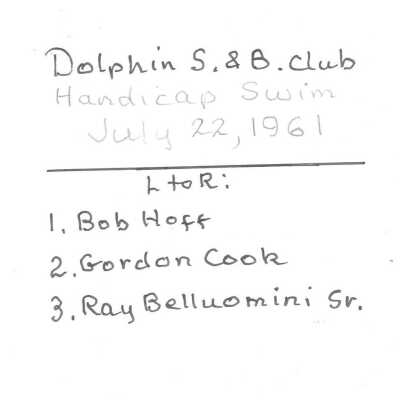 Dolphin S. & B. Club
Handicap Swim
July 22, 1961
L to R:
1. Bob Hoff
2. Gordon Cook
3. Ray Belluomini Sr.